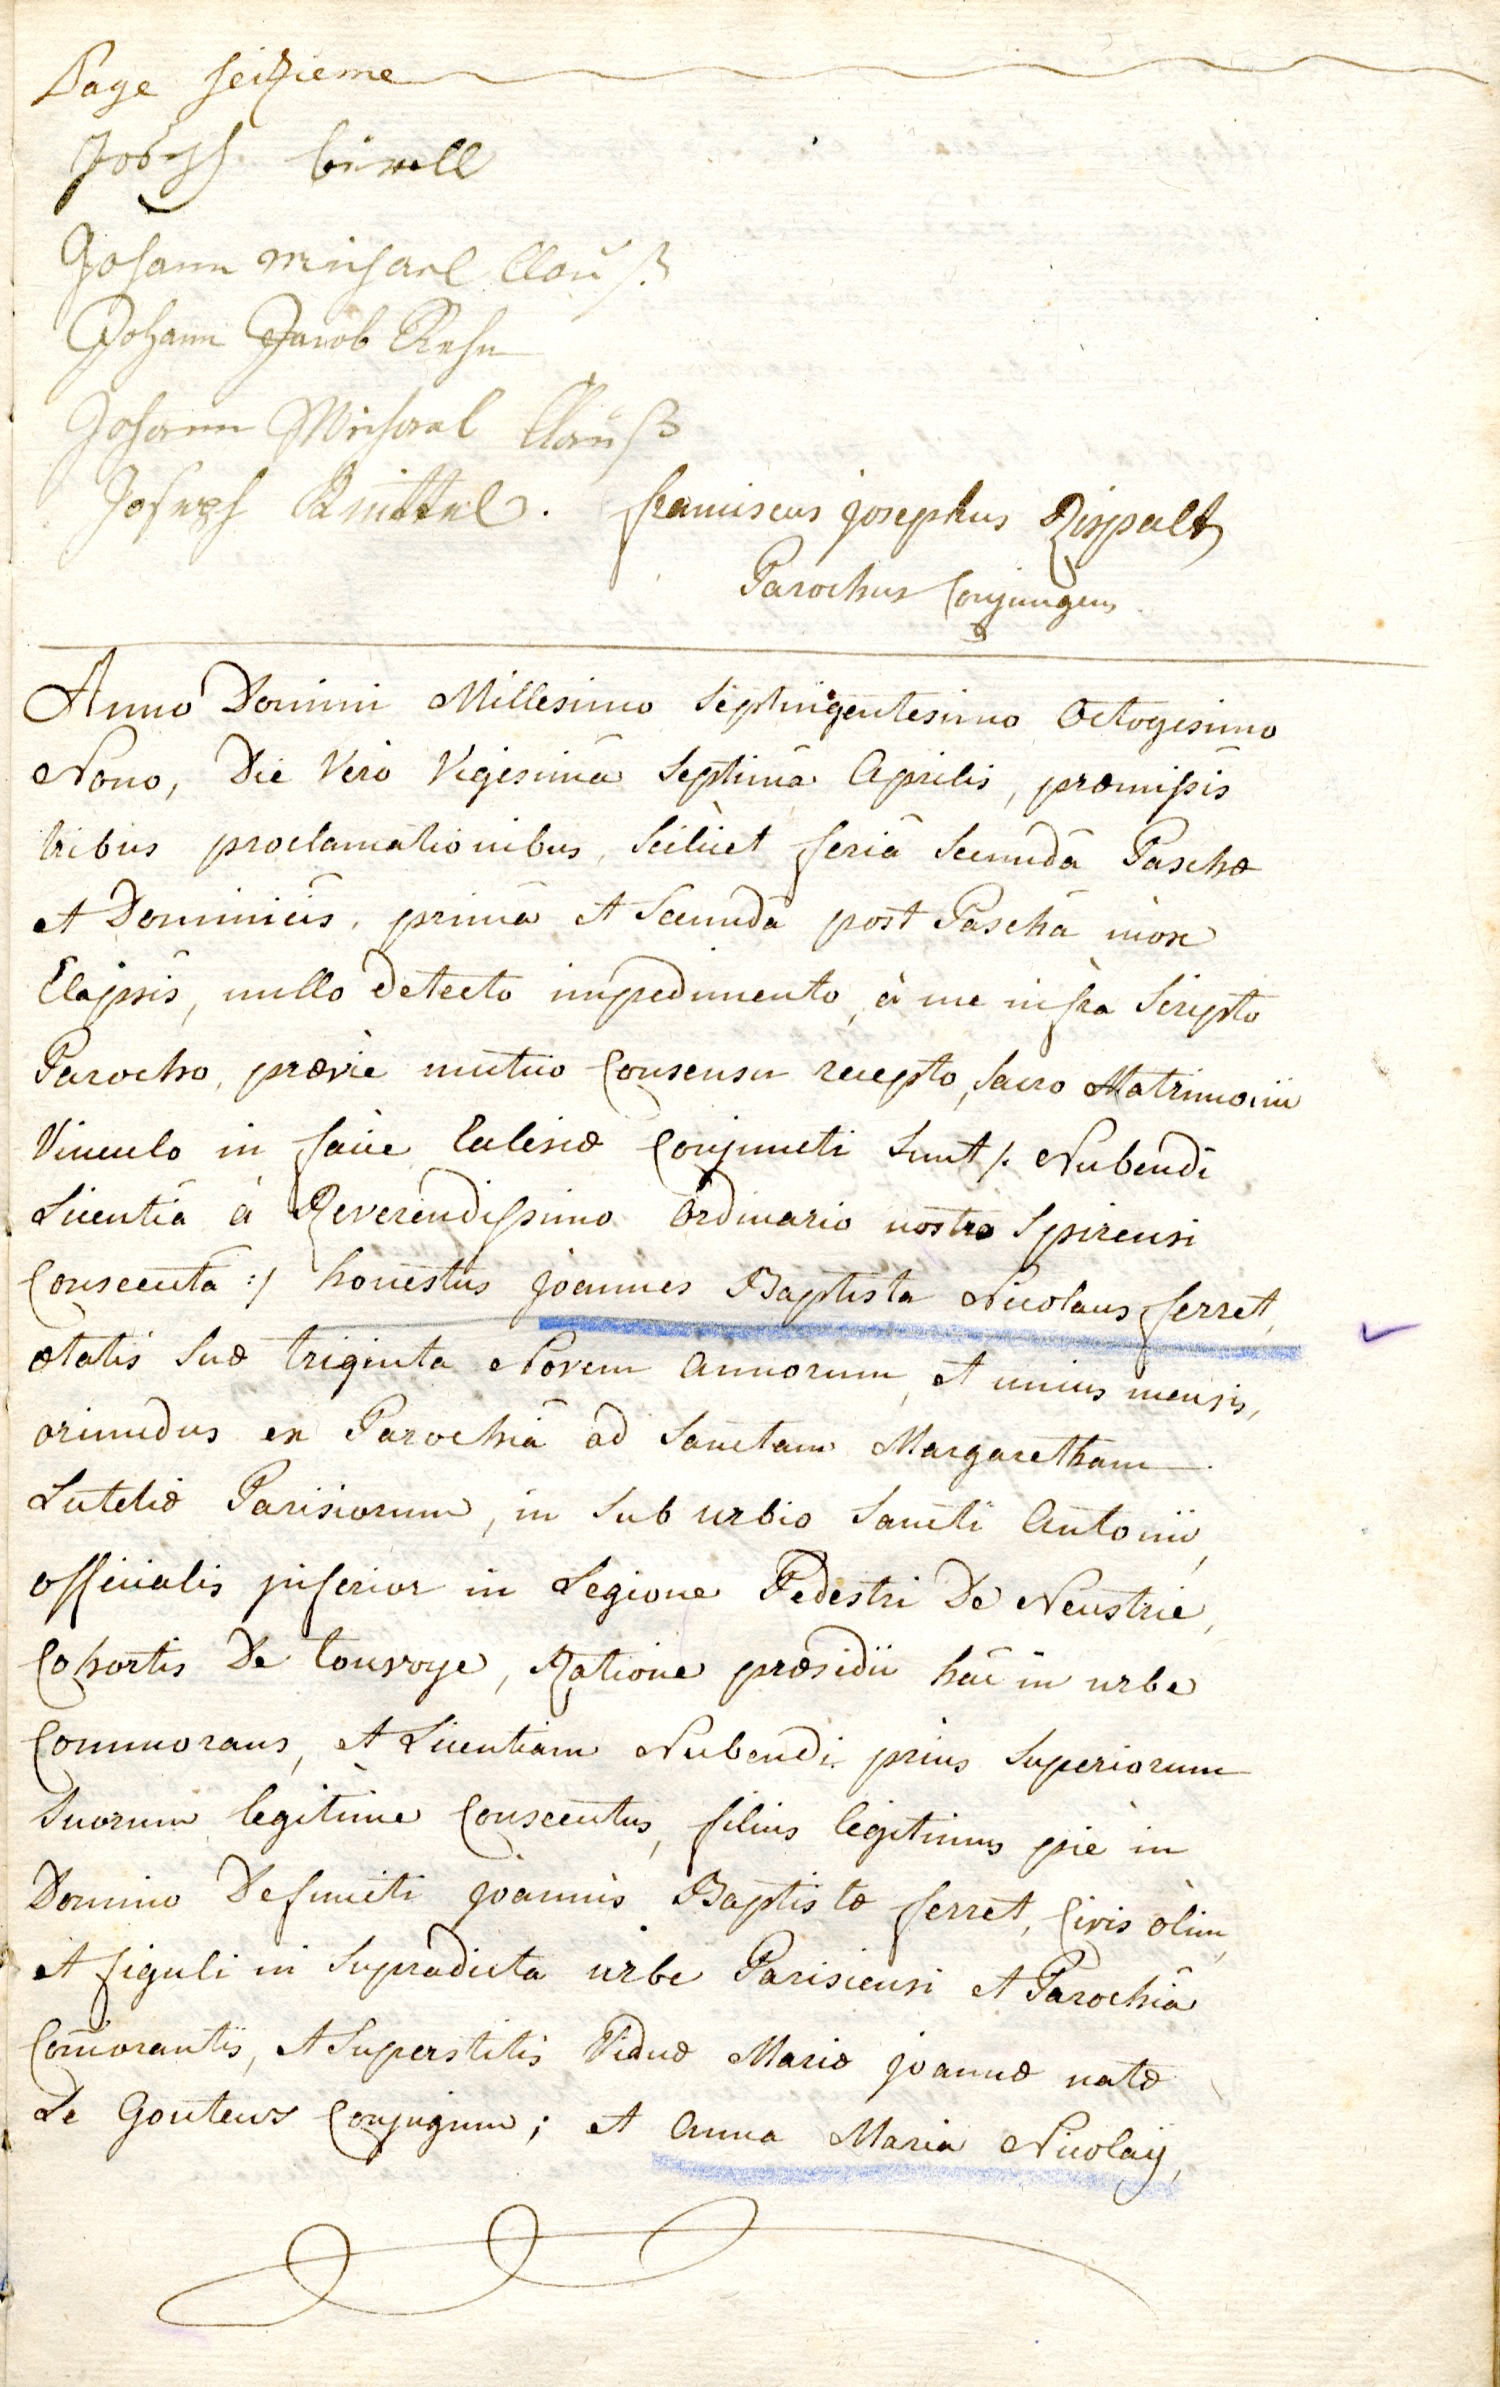 Page seizieme
Joseph birell
Johann michael Clauß
Johann Jacob Rehn
Johann Michael Clauß
Joseph Knittel. franciscus josephus Rispalt
Parochus Conjungens
Anno Domini Millesimo Septingentesimo Octogesimo
Nono, Die Vero Vigesimâ Septimâ Aprilis, præmissis
tribus proclamationibus, Scilicet feriâ Secundâ Paschæ
et Dominicis, primâ et Secundâ post Pascha mox
Elapsis, nullo Detecto impedimento, à me infra Scripto
Parocho, prævie mutuo Consensu recepto, Sacro Matrimonii
Vinculo in facie Eclesiæ Conjuncti Sunt /: Nubendi
Licentiâ à Reverendissimo Ordinario nostro Spirensi
Consecuta :/ honestus joannes Baptista Nicolaus ferret,
ætatis Suæ triginta Novem Annorum, et unius mensis,
oriundus ex Parochiâ ad Sanctam Margaretham
Lutetiæ Parisiorum, in Sub urbio Sancti Antonii,
officialis inferior in Legione Pedestri De Neustrie,
Cohortis De touroye, Ratione præsidii hâc in urbe
Commorans, et Licentiam Nubendi prius Superiorum
Suorum legitime Consecutus, filius legitimus piè in
Domino Defuncti joannis Baptistæ ferret, Civis olim,
et figuli in Supradicta urbe Parisiensi et Parochiâ
Com̄orantis, et Superstitis Viduæ Mariæ joannæ natæ
Le Gouteux Conjugum; et Anna Maria Nicolaÿ,